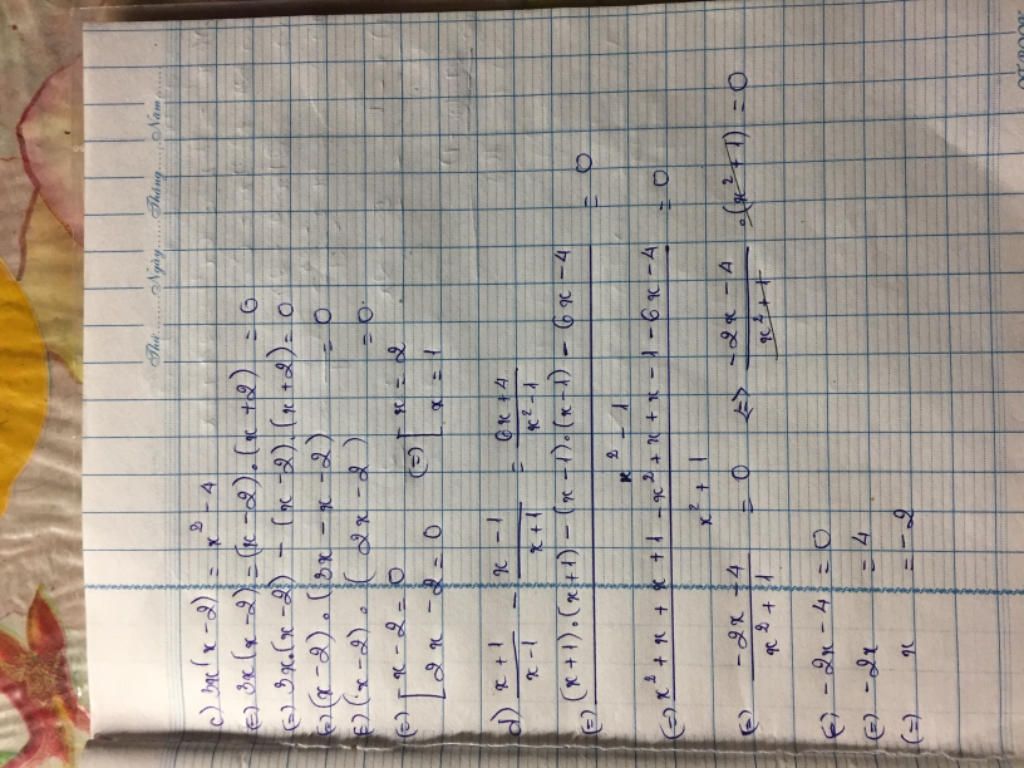 Thứ ........ Ngày ........ Tháng ........ Năm ........
c) 3x(x-2) = x² - 4
(=) 3x(x-2) = (x-2).(x+2) = 0
(=) 3x(x-2) - (x-2).(x+2) = 0
(=) (x-2).(3x-x-2) = 0
(=) (x-2).(2x-2) = 0
(=) [ x-2=0 (=) [ x=2
[ 2x-2=0 [ x=1
d) (x+1)/(x-1) - (x-1)/(x+1) = (6x+4)/(x²-1)
(=) ((x+1).(x+1) - (x-1).(x-1) - 6x-4)/(x²-1) = 0
(=) (x²+x+x+1-x²+x+x-1-6x-4)/(x²+1) = 0
(=) (-2x-4)/(x²+1) = 0 <=> (-2x-4)/(x²+1) .(x²+1) = 0
(=) -2x-4 = 0
(=) -2x = 4
(=) x = -2